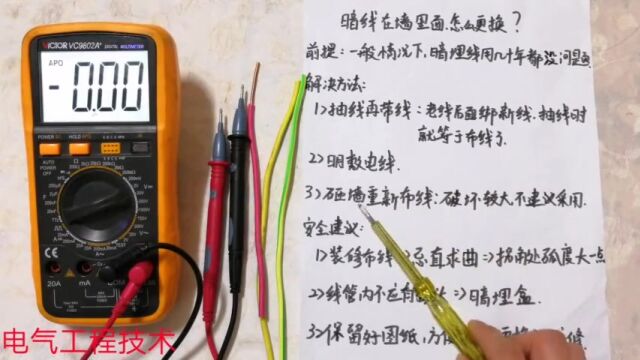 VICTOR VC9802A+
DIGITAL MULTIMETER
APO
-0.00
POWER
HOLD
20A
mA
COM
电气工程技术
暗线在墙里面怎么更换？
前提：一般情况下，暗埋线用几十年都没问题
解决方法：
1>抽线再带线：老线后面绑新线，抽线时
就等于布线了
2>明敷电线.
3>砸墙重新布线：破坏较大，不建议采用.
安全建议：
1>装修布线=>忌直求曲=>拐角处弧度大点
2>线管内不
=>暗埋盒.
3>保留好图纸，方